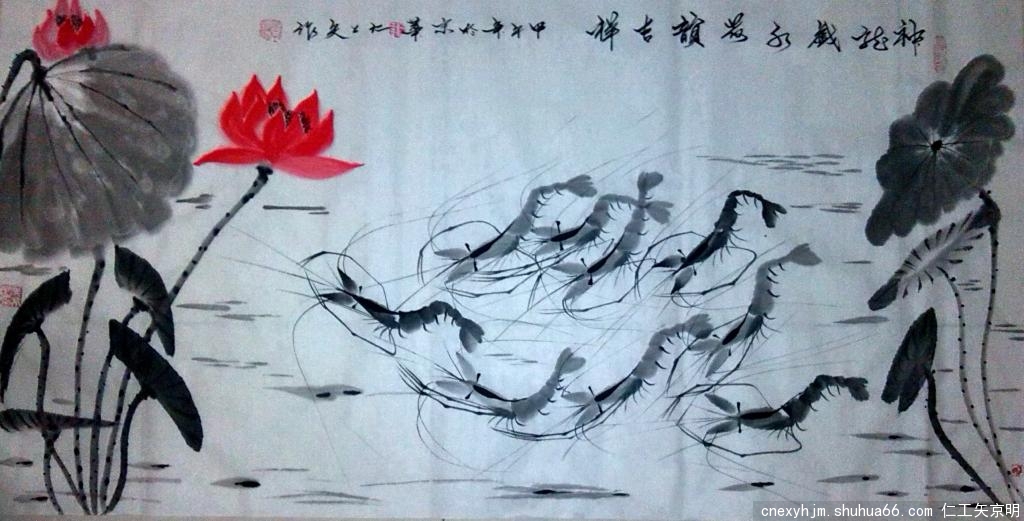 神龍戲水荷韻吉祥 甲午年於京華仁工矢作
cnexyhjm.shuhua66.com 仁工矢京明